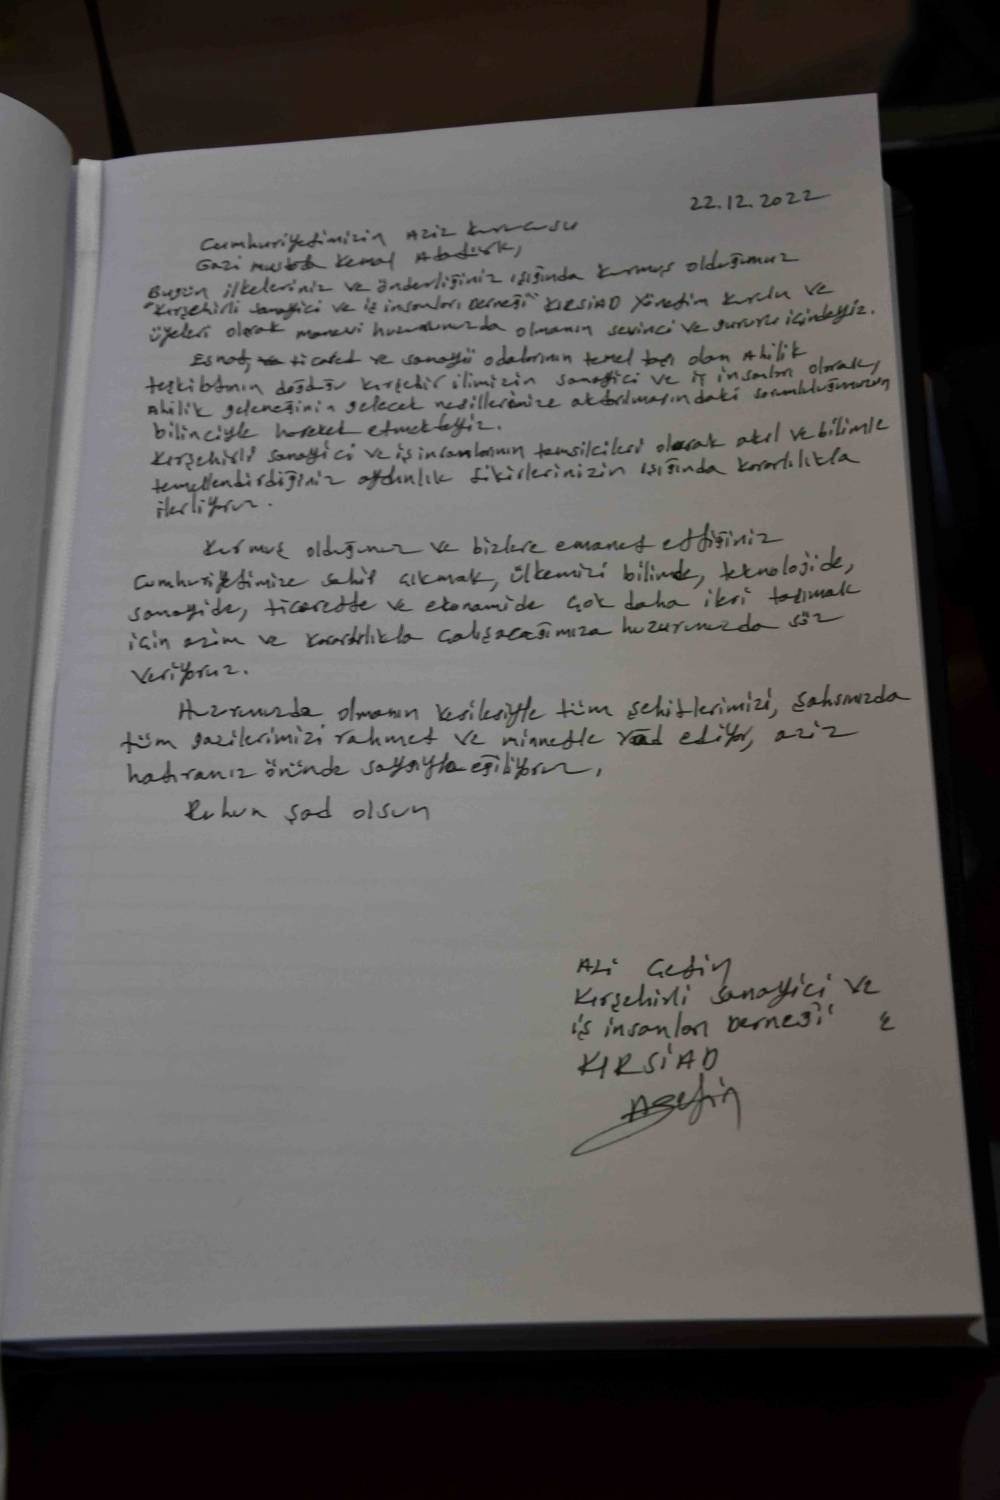 22.12.2022
Cumhuriyetimizin Aziz Kurucusu
Gazi Mustafa Kemal Atatürk,
Bugün ilkeleriniz ve önderliğiniz ışığında kurmuş olduğumuz
"Kırşehirli Sanayici ve iş insanları Derneği" KIRSİAD Yönetim Kurulu ve
üyeleri olarak manevi huzurunuzda olmanın sevinci ve gururu içindeyiz.
Esnaf, ticaret ve sanayi odalarının temel taşı olan Ahilik
teşkilatının doğduğu Kırşehir ilimizin sanayici ve iş insanları olarak,
Ahilik geleneğinin gelecek nesillerimize aktarılmasındaki sorumluluğumuzun
bilinciyle hareket etmekteyiz.
Kırşehirli sanayici ve iş insanlarının temsilcileri olarak akıl ve bilimle
temellendirdiğiniz aydınlık fikirlerinizin ışığında kararlılıkla
ilerliyoruz.
Kurmuş olduğunuz ve bizlere emanet ettiğiniz
Cumhuriyetimize sahip çıkmak, ülkemizi bilimde, teknolojide,
sanayide, ticarette ve ekonomide çok daha ileri taşımak
için azim ve kararlılıkla çalışacağımıza huzurunuzda söz
veriyoruz.
Huzurunuzda olmanın vesilesiyle tüm şehitlerimizi, şahsınızda
tüm gazilerimizi rahmet ve minnetle yad ediyor, aziz
hatıranız önünde saygıyla eğiliyoruz.
Ruhun şad olsun
Ali Çetin
Kırşehirli Sanayici ve
iş insanları Derneği
KIRSİAD
AÇetin